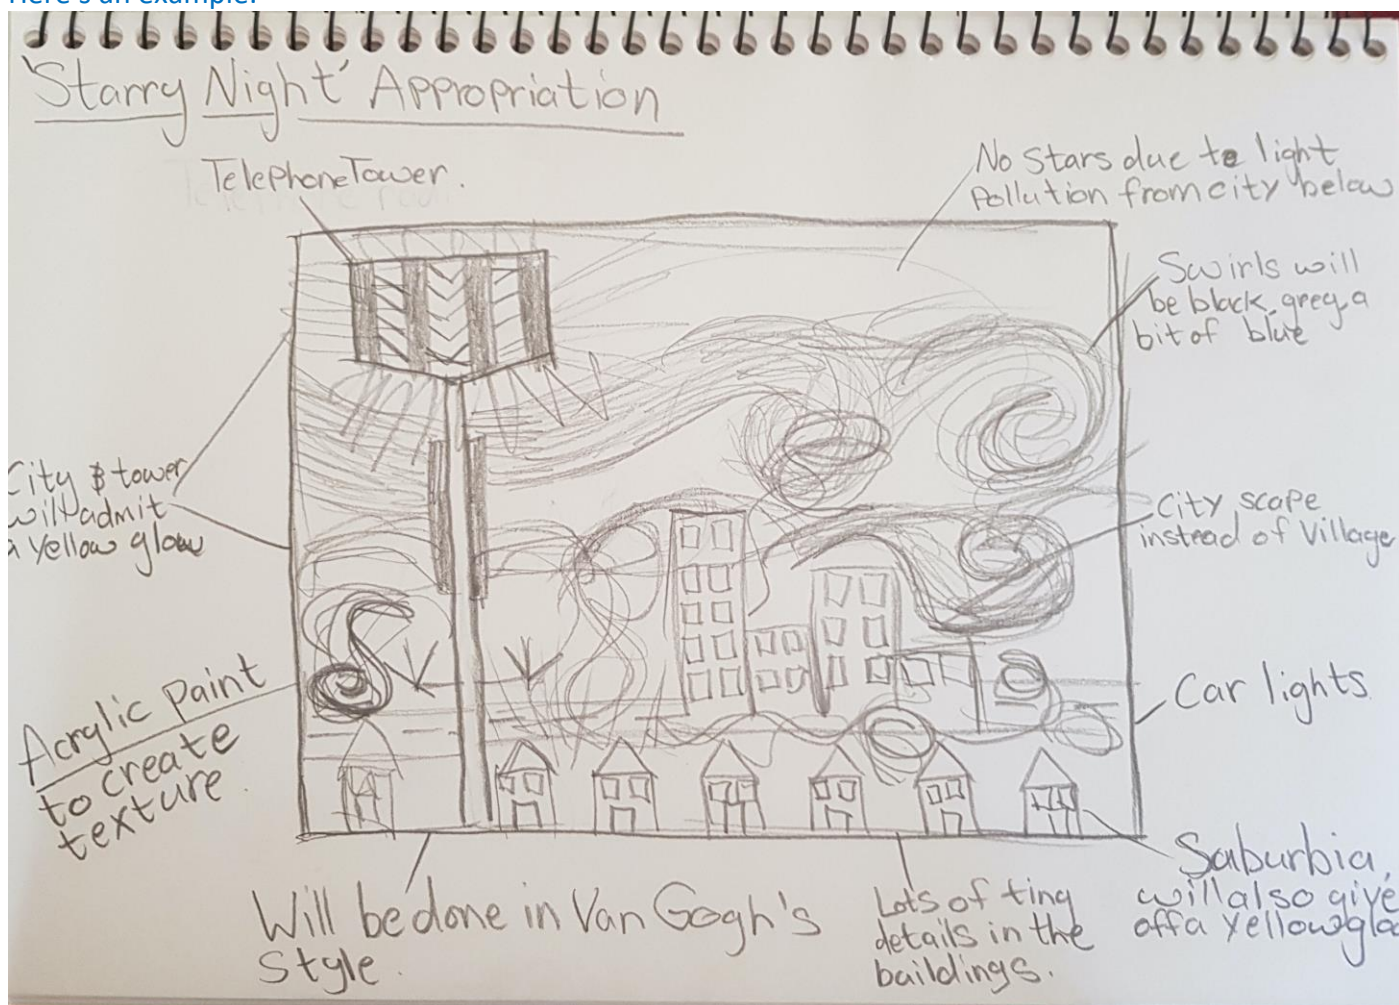 Here's an example:
'Starry Night' Appropriation
Telephone Tower.
No stars due to light
pollution from city below
Swirls will
be black, grey, a
bit of blue
City & tower
will admit
a yellow glow
City scape
instead of Village
Acrylic paint
to create
texture.
Car lights
Will be done in Van Gogh's
Style.
Lots of ting
details in the
baildings.
Saburbia,
will also give
off a yellow glo